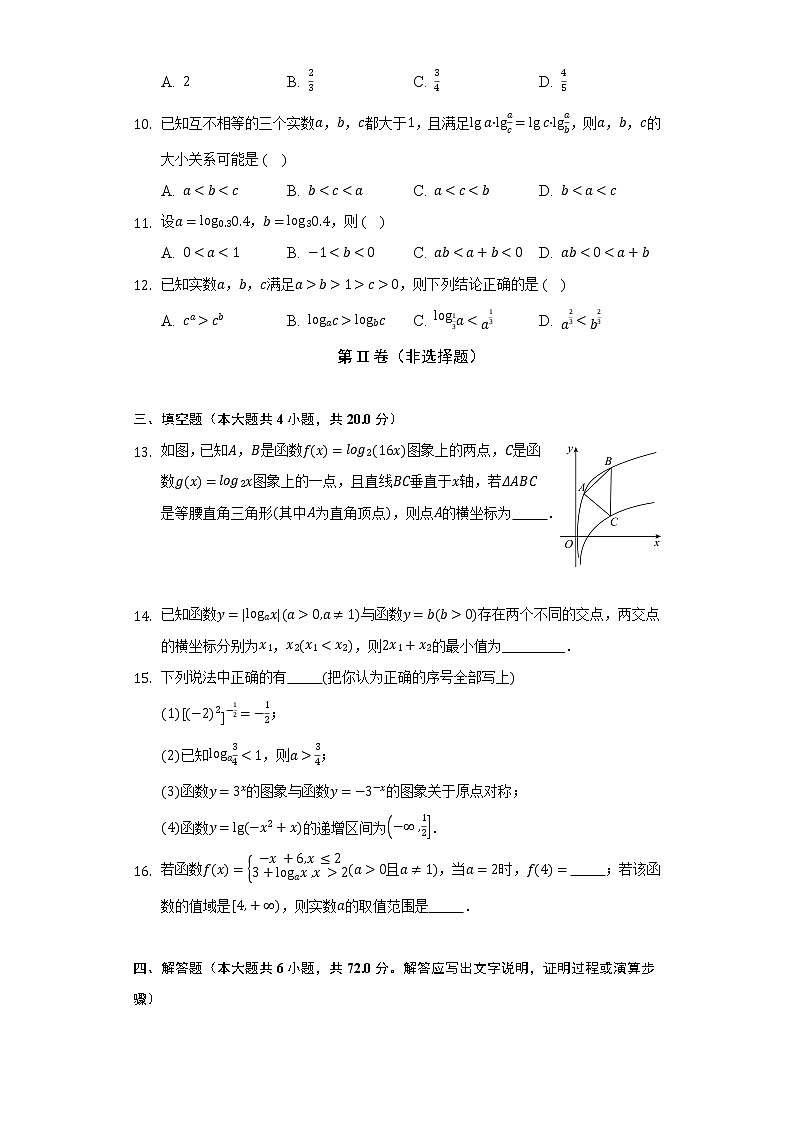 A. 2 B. 2/3 C. 3/4 D. 4/5
10. 已知互不相等的三个实数a，b，c都大于1，且满足lg a·lg a/c = lg c·lg a/b，则a，b，c的
大小关系可能是 ( )
A. a < b < c B. b < c < a C. a < c < b D. b < a < c
11. 设a = log₀.₃0.4，b = log₃0.4，则 ( )
A. 0 < a < 1 B. −1 < b < 0 C. ab < a + b < 0 D. ab < 0 < a + b
12. 已知实数a，b，c满足a > b > 1 > c > 0，则下列结论正确的是 ( )
A. c^a > c^b B. log_a c > log_b c C. log_{1/3} a < a^{1/3} D. a^{2/3} < b^{2/3}
第 II 卷（非选择题）
三、填空题（本大题共 4 小题，共 20.0 分）
13. 如图，已知A，B是函数f(x) = log₂(16x)图象上的两点，C是函
数g(x) = log₂x图象上的一点，且直线BC垂直于x轴，若ΔABC
是等腰直角三角形(其中A为直角顶点)，则点A的横坐标为_____.
y
B
A
C
O
x
14. 已知函数y = |log_a x|(a > 0,a ≠ 1)与函数y = b(b > 0)存在两个不同的交点，两交点
的横坐标分别为x₁，x₂(x₁ < x₂)，则2x₁ + x₂的最小值为_________.
15. 下列说法中正确的有_____(把你认为正确的序号全部写上)
(1)[(−2)²]^{−1/2} = −1/2;
(2)已知log_a 3/4 < 1，则a > 3/4;
(3)函数y = 3^x的图象与函数y = −3^{−x}的图象关于原点对称;
(4)函数y = lg(−x² + x)的递增区间为(−∞,1/2].
16. 若函数f(x) = {−x + 6,x ≤ 2
3 + log_a x,x > 2(a > 0且a ≠ 1)，当a = 2时，f(4) = _____；若该函
数的值域是[4, + ∞)，则实数a的取值范围是_____.
四、解答题（本大题共 6 小题，共 72.0 分。解答应写出文字说明，证明过程或演算步
骤）